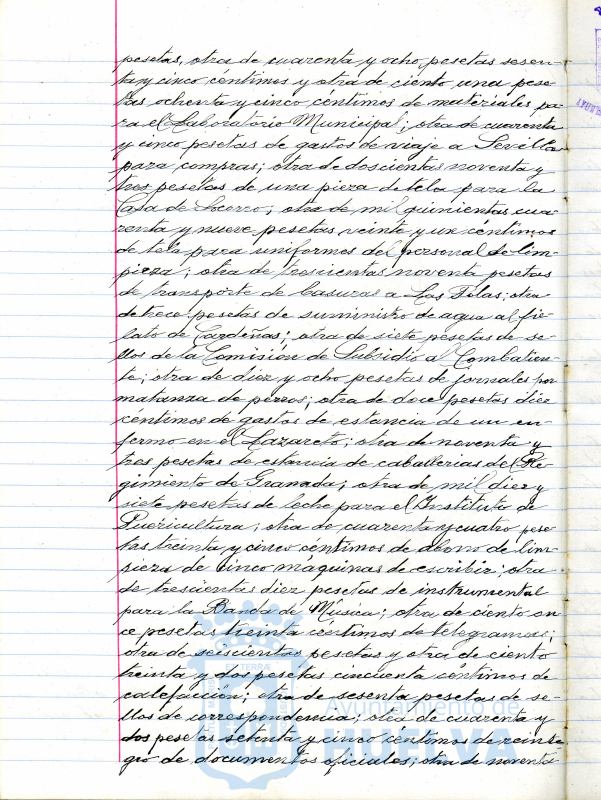 pesetas, otra de cuarenta y ocho pesetas sesen-
ta y cinco céntimos y otra de ciento una pese-
tas ochenta y cinco céntimos de materiales pa-
ra el Laboratorio Municipal; otra de cuarenta
y cinco pesetas de gastos de viaje a Sevilla
para compras; otra de doscientas noventa y
tres pesetas de una pieza de tela para la
Casa de Socorro; otra de mil quinientas cua-
renta y nueve pesetas veinte y un céntimos
de tela para uniformes del personal de lim-
pieza; otra de trescientas noventa pesetas
de transporte de basuras a Las Tolas; otra
de trece pesetas de suministro de agua al fie-
lato de Cardeñas; otra de siete pesetas de se-
llos de la Comisión de Subsidio al Combatien-
te; otra de diez y ocho pesetas de jornales por
matanza de perros; otra de doce pesetas diez
céntimos de gastos de estancia de un en-
fermo en el Lazareto; otra de noventa y
tres pesetas de estancia de caballerias del Re-
gimiento de Granada; otra de mil diez y
siete pesetas de leche para el Instituto de
Puericultura; otra de cuarenta y cuatro pese-
tas treinta y cinco céntimos de abono de lim-
pieza de cinco máquinas de escribir; otra
de trescientas diez pesetas de instrumental
para la Banda de Música; otra de ciento on-
ce pesetas treinta céntimos de telegramas;
otra de seiscientas pesetas y otra de ciento
treinta y dos pesetas cincuenta céntimos de
calefacción; otra de sesenta pesetas de se-
llos de correspondencia; otra de cuarenta y
dos pesetas setenta y cinco céntimos de reinte-
gro de documentos oficiales; otra de noventa
Ayuntamiento de
HUELVA